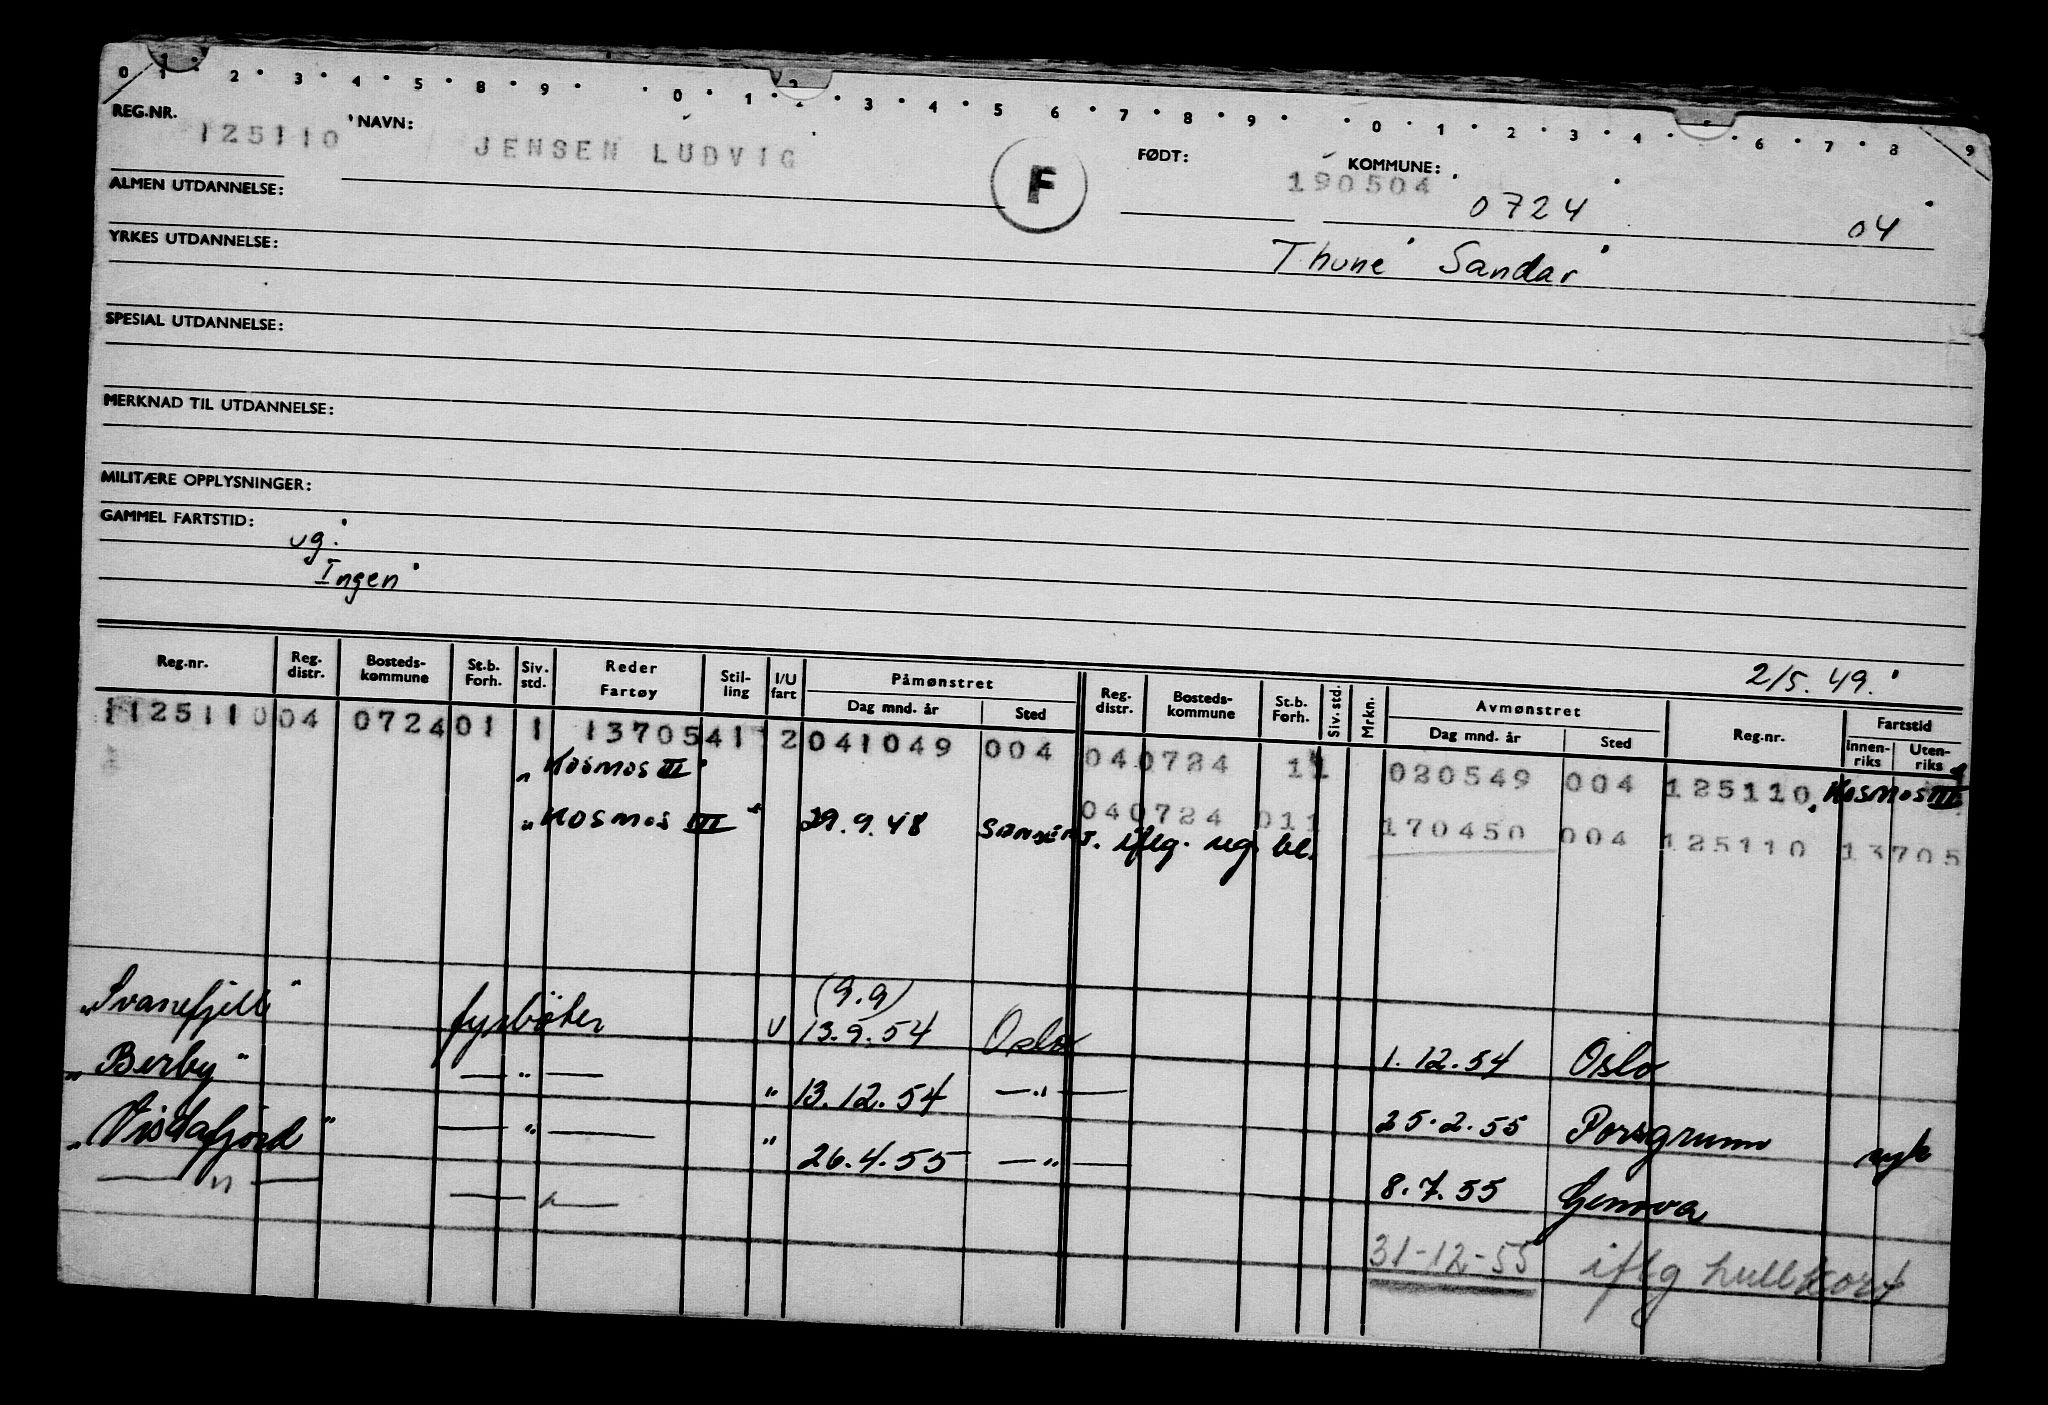 0 1 2 3 4 5 8 9 0 1 2 3 4 5 6 7 8 9 0 1 2 3 4 5 6 7 8 9
REG.NR. 125110 NAVN: JENSEN LUDVIG F FØDT: 190504 KOMMUNE: 0724 04
ALMEN UTDANNELSE:
YRKES UTDANNELSE: Thune Sandar
SPESIAL UTDANNELSE:
MERKNAD TIL UTDANNELSE:
MILITÆRE OPPLYSNINGER:
GAMMEL FARTSTID: ug.
Ingen
2/5.49.
Reg.nr. Reg. distr. Bosteds-kommune St.b. Forh. Siv. std. Reder Fartøy Stil-ling I/U fart Påmønstret Dag mnd. år Sted Reg. distr. Bosteds-kommune St.b. Forh. Siv. std. Mrkn. Avmønstret Dag mnd. år Sted Reg.nr. Fartstid Innen-riks Uten-riks
125110 04 0724 01 1 13705 41 2 041049 004 04 0724 11 020549 004 125110 "Kosmos III"
"Kosmos III" 040724 011 170450 004 125110 13705
"Kosmos III" 29.9.48 iflg. ug. bl.
"Svanefjell" fyrbøter U (9.9) 13.9.54 Oslo 1.12.54 Oslo
"Berby" — " — " 13.12.54 — " — 25.2.55 Porsgrunn
"Vistafjord" — " — " 26.4.55 — " — 8.7.55 Genova syk
— " — — " — 31-12-55 iflg hullkort